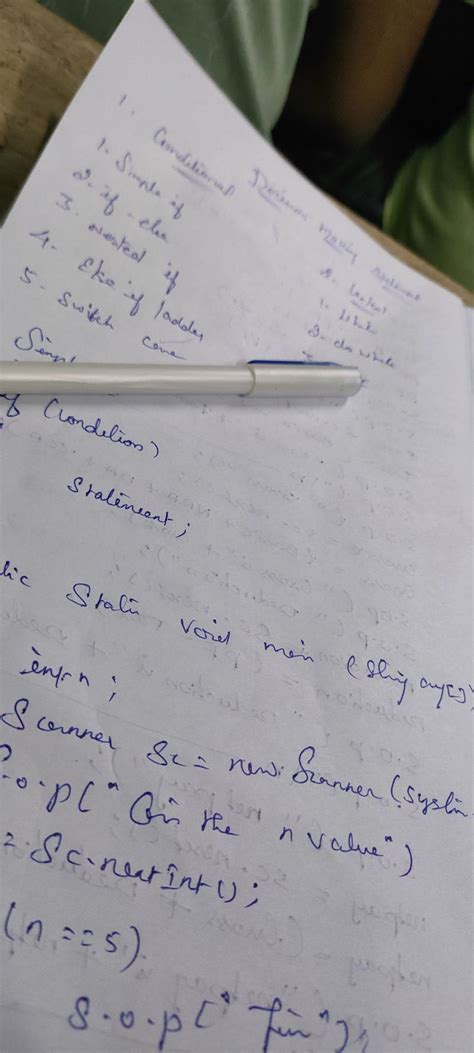 1.
Decision Making Statement
Conditional
1. Simple if
2. if - else
3. nested if
4. Else if ladder
5. Switch case
2.
1. While
2. do while
Simple
if (Condition)
Statement;
lic Static void main (String args[])
int n;
Scanner Sc = new Scanner (System
S.o.p(" Give the n value")
= Sc.nextInt();
(n == 5)
S.o.p("